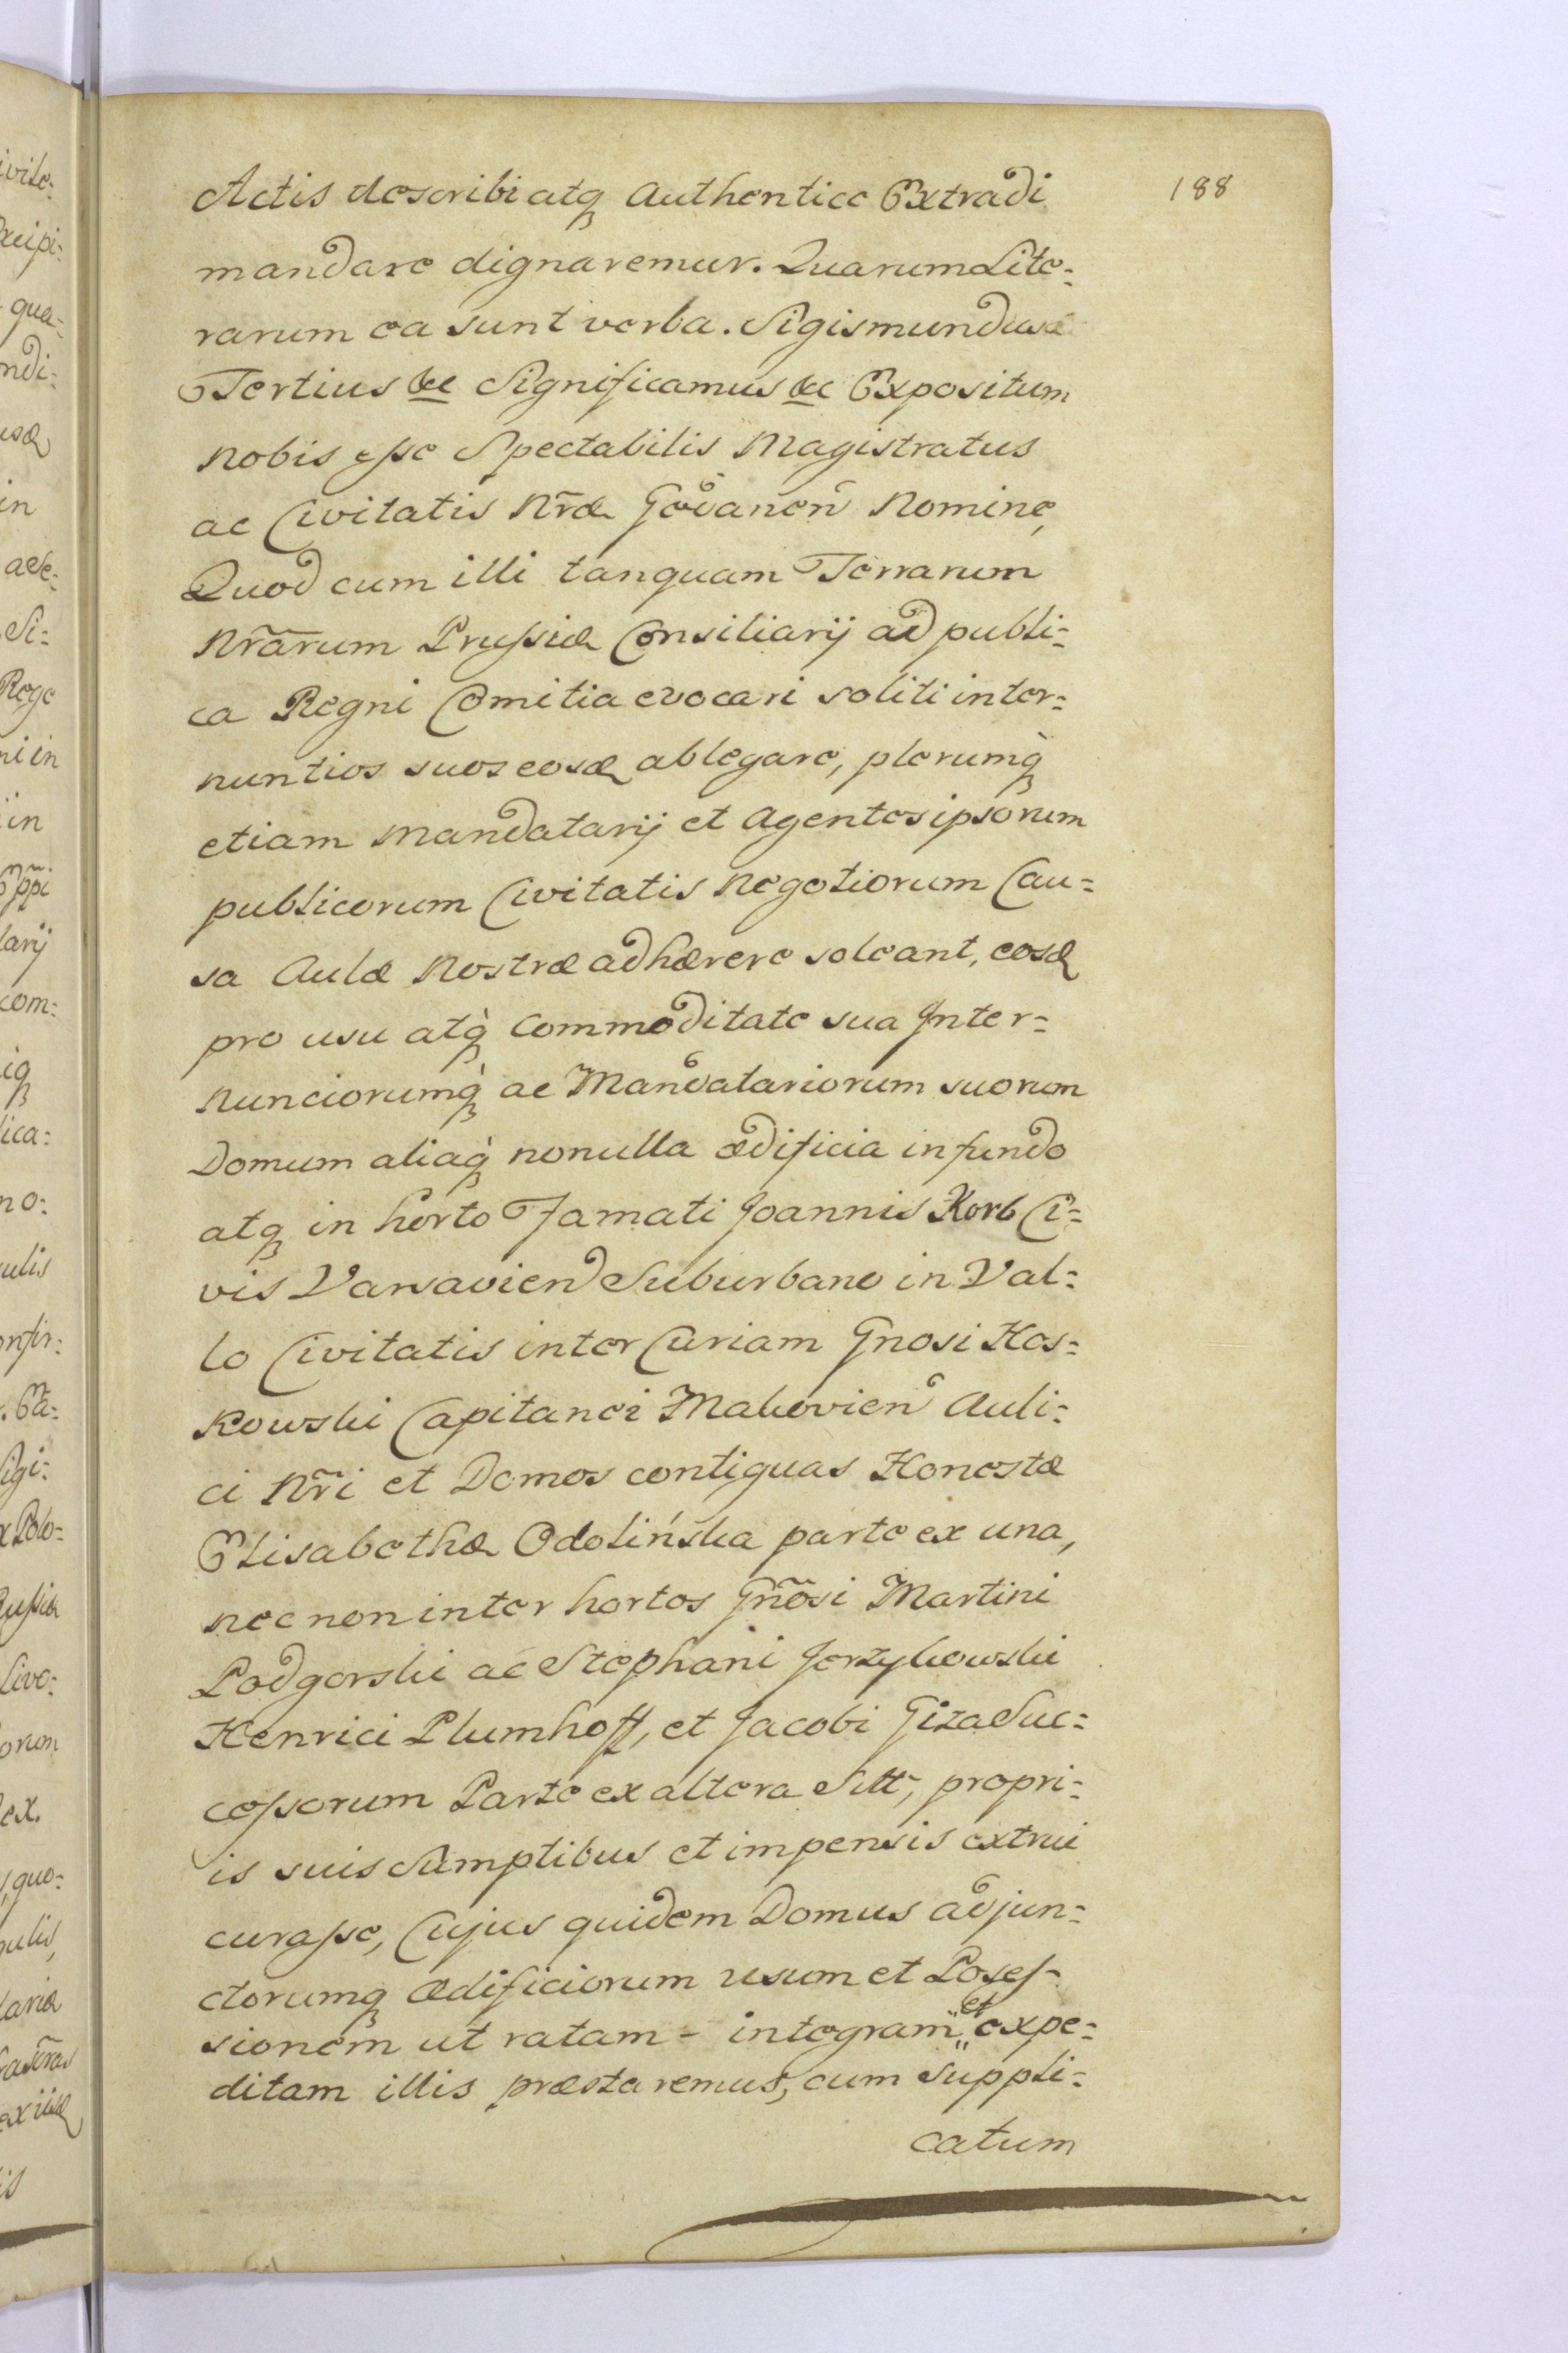 188
Actis describi atq́ue Authentice Extradi
mandare dignaremur. Quarum Lite=
rarum ea sunt verba. Sigismundus
Tertius &c Significamus &c Expositum
nobis esse Spectabilis Magistratus
ac Civitatis Nr̃æ Gedanen̄ Nomine,
Quod cum illi tanquam Terrarum
Nr̃arum Prussiæ Consiliarij ad publi=
ca Regni Comitia evocari soliti inter=
nuntios suos eosq₃ ablegare, plerumq̀
etiam Mandatarij et Agentes ipsorum
publicorum Civitatis Negotiorum Cau=
sa Aulæ Nostræ adhærere soleant, eosq₃
pro usu atq̀ Commoditate sua Inter=
nunciorumq̀ ac Mandatariorum suorum
Domum aliaq̀ nonulla ædificia in fundo
atq in horto Famati Joannis Korb Ci=
vis Varsavien Suburbano in Val=
lo Civitatis inter Curiam Gnosi Kos=
Kowski Capitanei Makovien Auli=
ci Nr̃i et Domos contiguas Honestæ
Elisabethæ Odolińska parte ex una,
nec non inter hortos Gñosi Martini
Podgorski ac Stephani Jerzykowski
Henrici Plumhoff, et Jacobi Giza Suc=
cessorum Parte ex altera Sitt, propri=
is suis Sumptibus et impensis extrui
curasse, Cujus quidem Domus adjun=
ctorumq Ædificiorum usum et Poses-
sionem ut ratam - integram et expe=
ditam illis præstaremus, cum Suppli=
catum